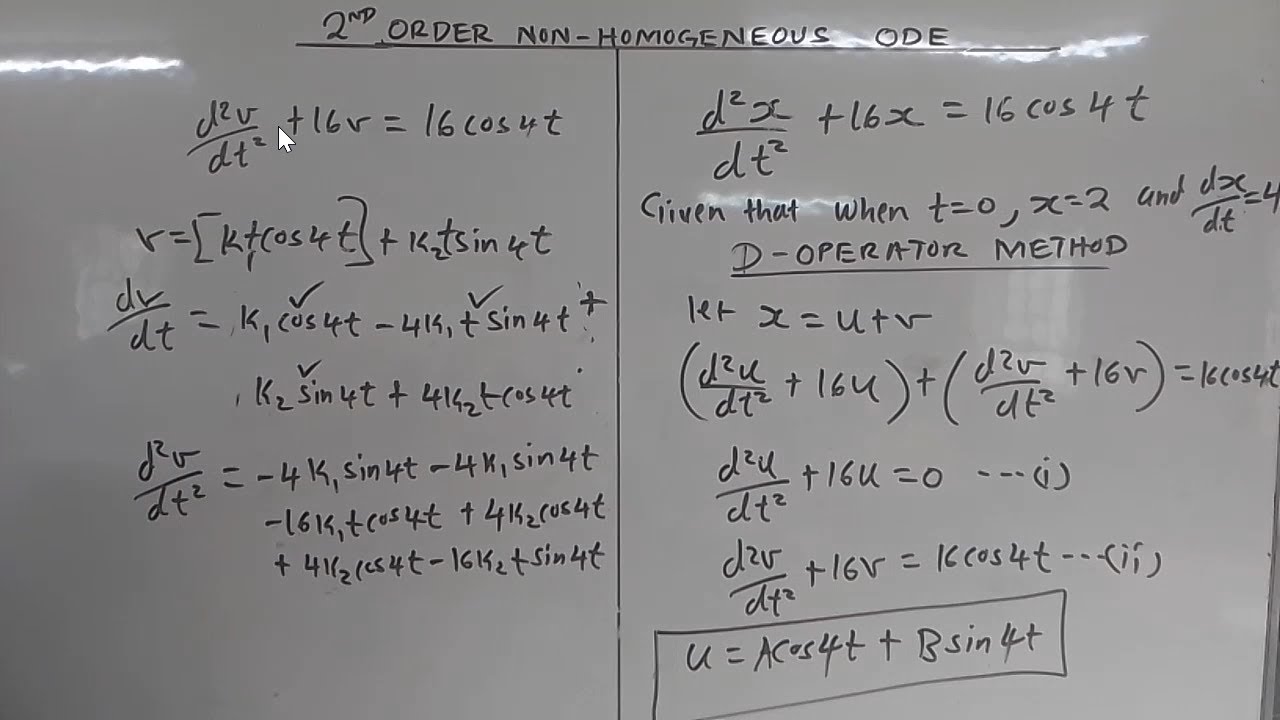 2ND ORDER NON-HOMOGENEOUS ODE
d²v/dt² + 16v = 16cos4t
v = [K₁tcos4t] + K₂tsin4t
dv/dt = K₁cos4t - 4K₁tsin4t +
K₂sin4t + 4K₂tcos4t
d²v/dt² = -4K₁sin4t - 4K₁sin4t
-16K₁tcos4t + 4K₂cos4t
+ 4K₂cos4t - 16K₂tsin4t
d²x/dt² + 16x = 16cos4t
Given that when t=0, x=2 and dx/dt=4
D-OPERATOR METHOD
let x = u+v
(d²u/dt² + 16u) + (d²v/dt² + 16v) = 16cos4t
d²u/dt² + 16u = 0 ---(i)
d²v/dt² + 16v = 16cos4t ---(ii)
u = Acos4t + Bsin4t